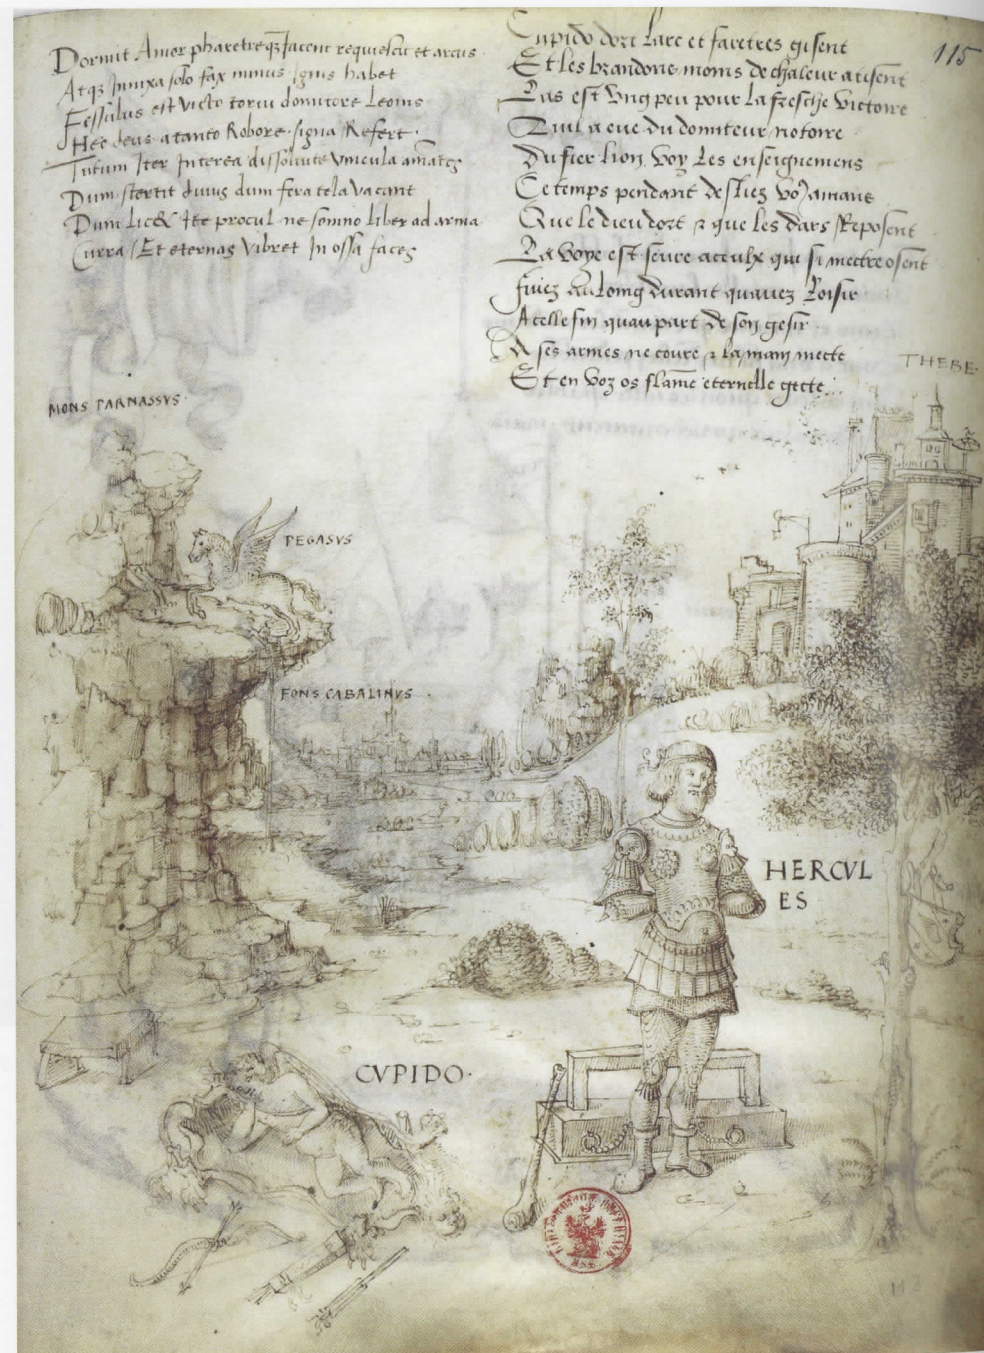 Dormit Amor pharetreqȝ Jacent requiescit et arcus
Atqȝ Innixa solo fax minus Ignis habet
Fessulus est victo toruu domitore Leonis
Hec deus a tanto Robore signa Refert
Tutum Iter Interea dissoluite vincula amātes
Dum stertit diuus dum fera tela vacant
Dum Lic& Ite procul ne somno liber ad arma
Curra / Et eternas vibret In ossa faces
Cupido dort larc et faretres gisent
Et les brandons moins de chaleur atisent
Las est vng peu pour la fresche victoire
Quil a eue du domteur notoire
Du fier lion voy les enseignemens
Ce temps pendant desliez voȝ amans
Que le dieu dort ⁊ que les dars Reposent
La voye est seure a ceulx qui si mectre osent
fuiez au loing durant quauez loisir
A celle fin quau part de son gesir
A ses armes ne coure ⁊ la main mecte
Et en voz os flame eternelle gecte
115
THEBE
MONS PARNASSVS
PEGASVS
FONS CABALINVS
HERCVL
ES
CVPIDO